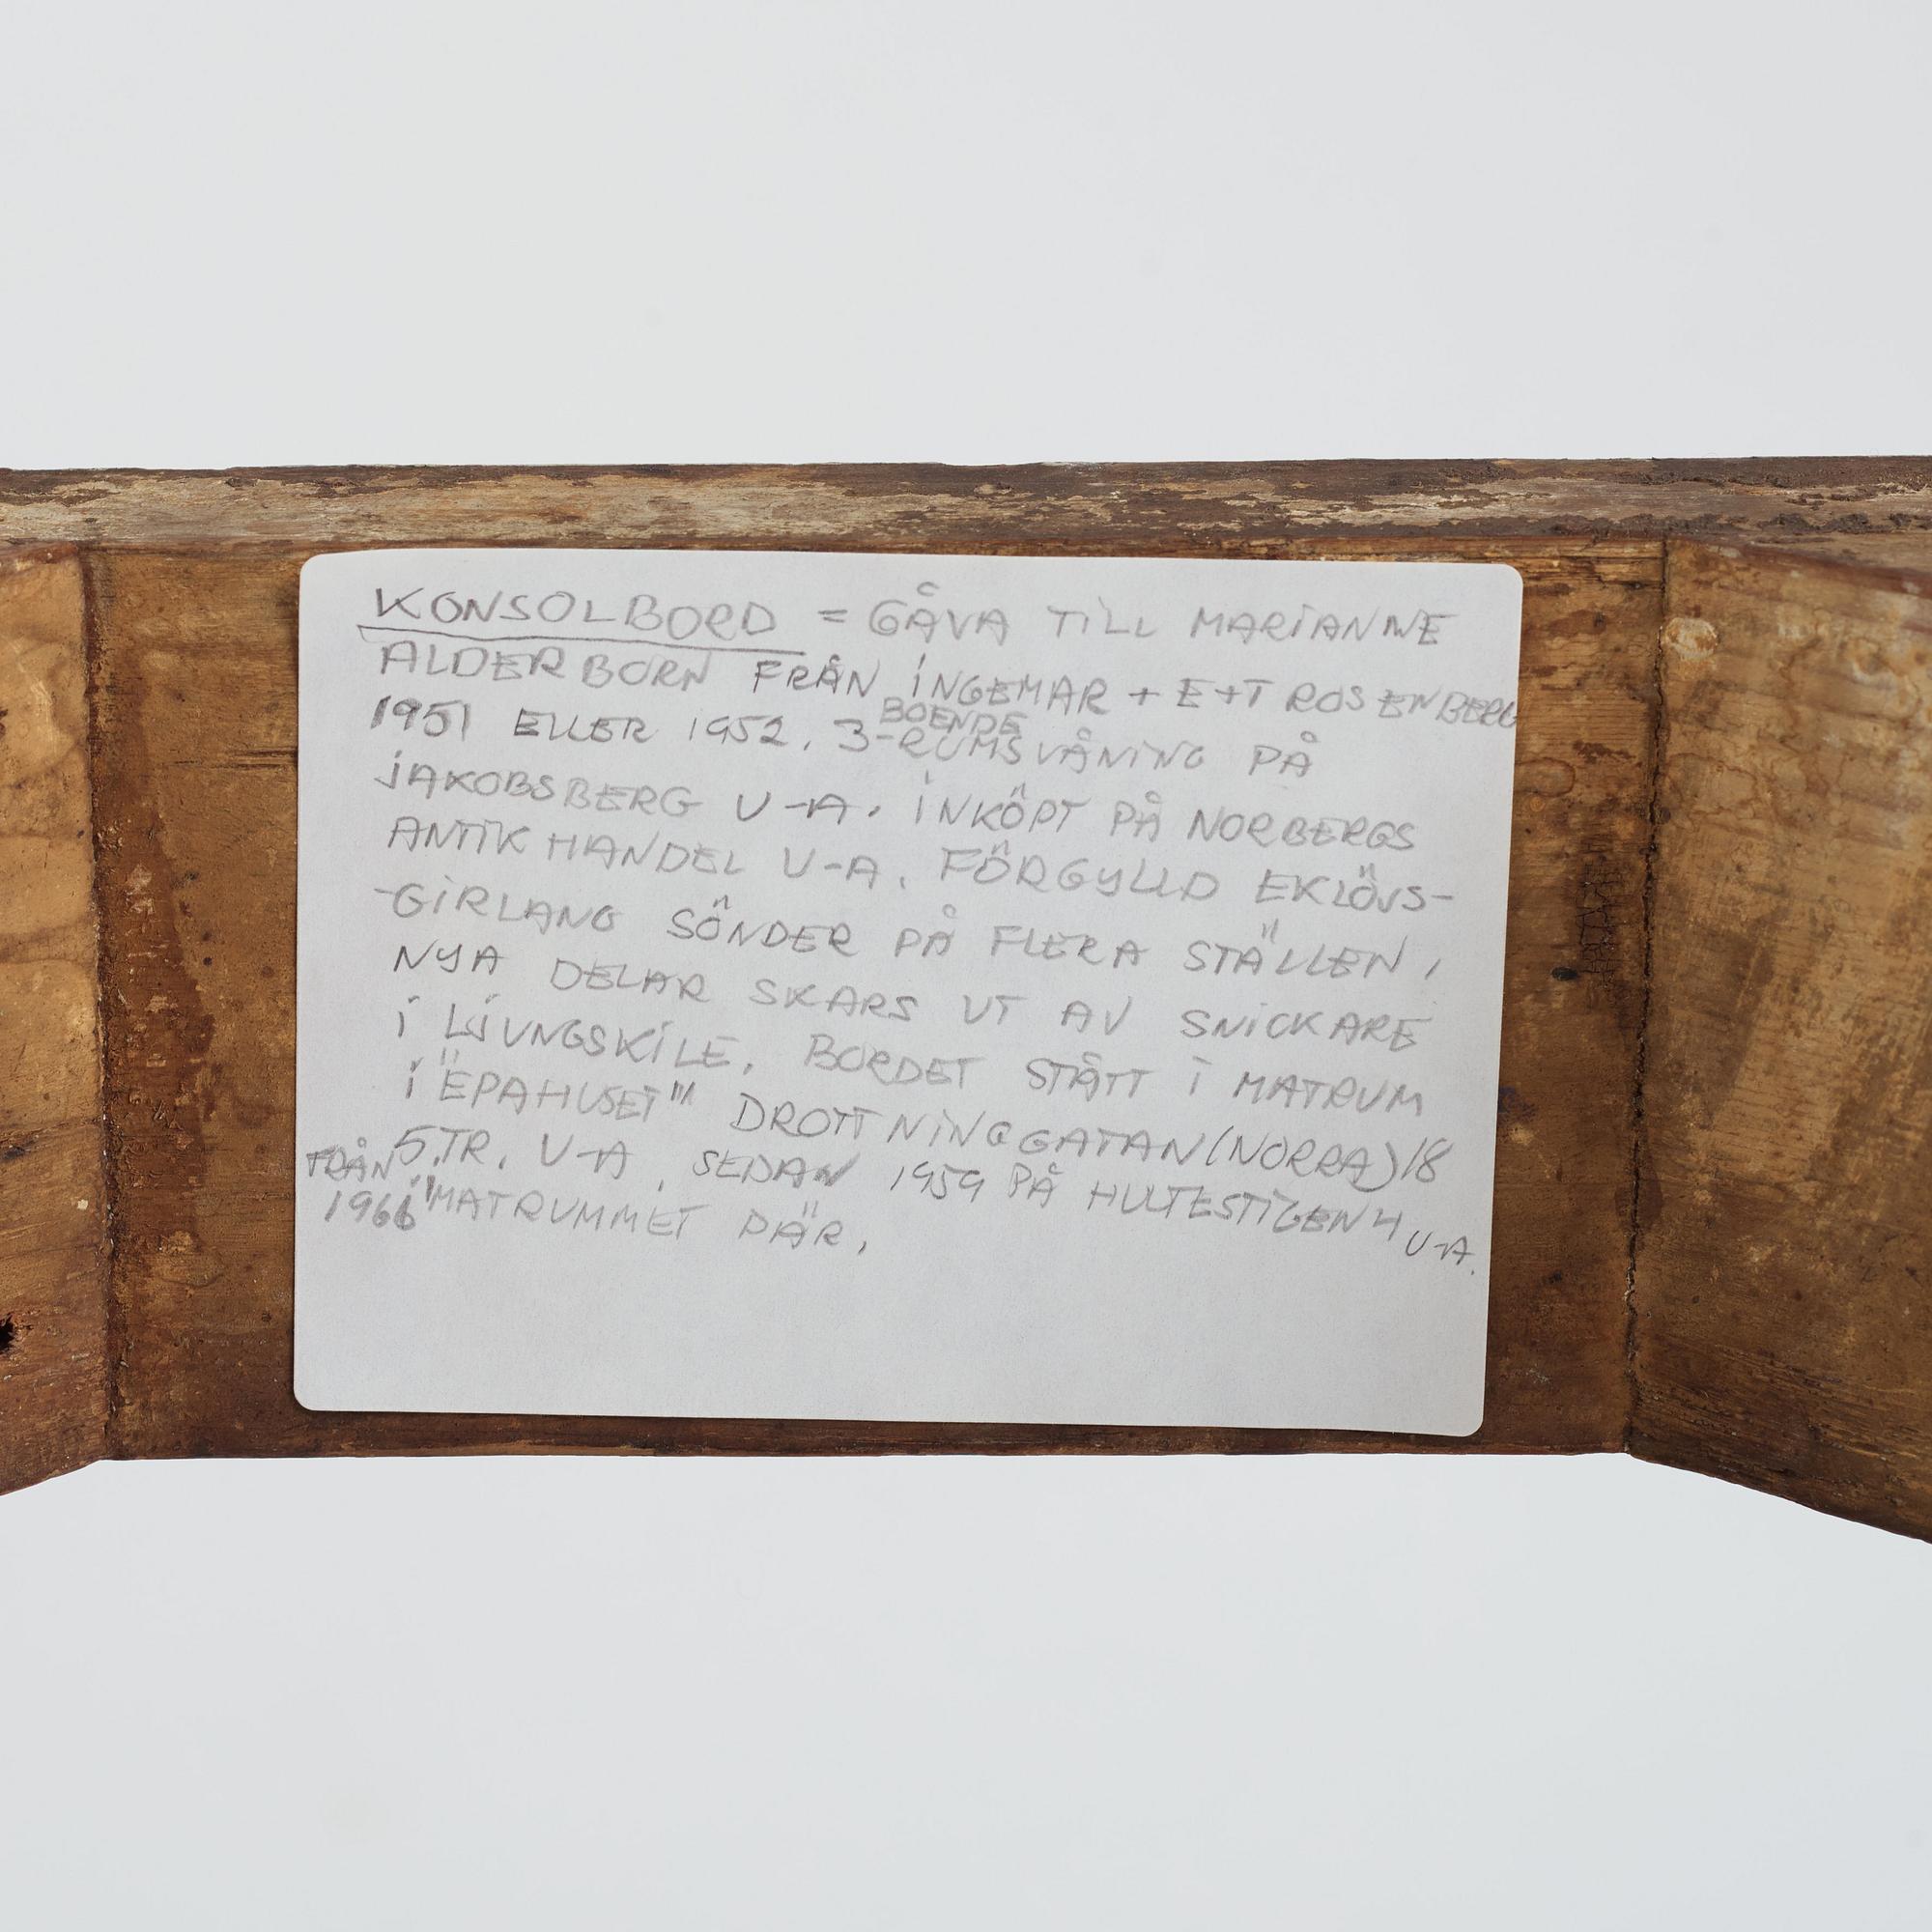 KONSOLBORD = GÅVA TILL MARIANNE
ALDERBORN FRÅN INGEMAR + E+T ROSENBERG
1951 ELLER 1952. BOENDE
3-RUMSVÅNING PÅ
JAKOBSBERG U-A. INKÖPT PÅ NORBERGS
ANTIKHANDEL U-A. FÖRGYLLD EKLÖVS-
-GIRLANG SÖNDER PÅ FLERA STÄLLEN,
NYA DELAR SKARS UT AV SNICKARE
I LJUNGSKILE. BORDET STÅTT I MATRUM
I "EPAHUSET" DROTTNINGGATAN (NORRA) 18
5.TR. U-A. SEDAN 1959 PÅ HULTESTIGEN 4 U-A.
FRÅN 1966 I "MATRUMMET DÄR.